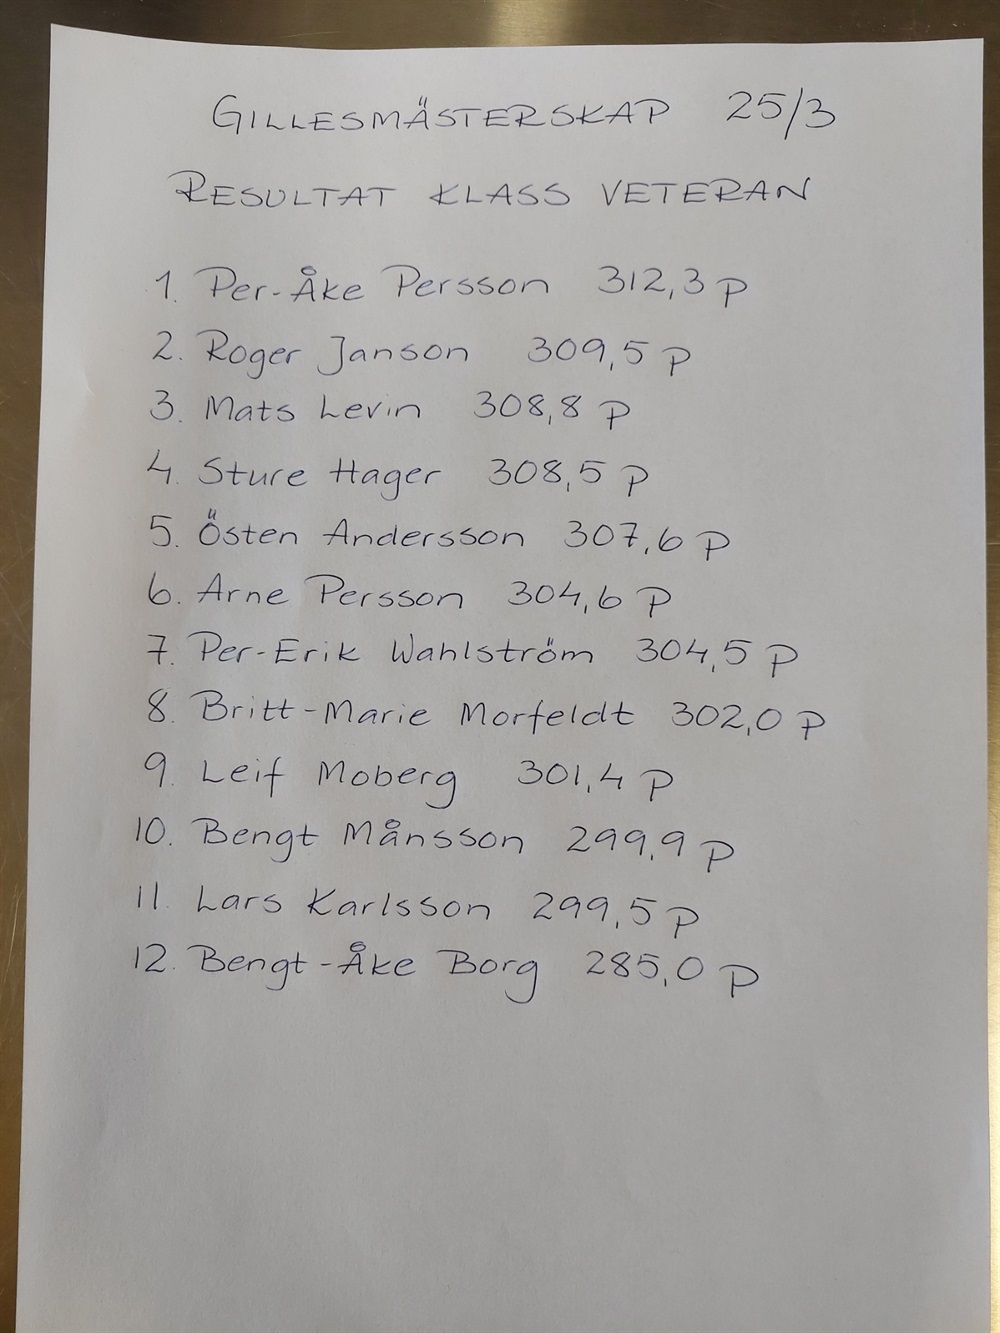 GILLESMÄSTERSKAP 25/3
RESULTAT KLASS VETERAN
1. Per-Åke Persson 312,3 p
2. Roger Janson 309,5 p
3. Mats Levin 308,8 p
4. Sture Hager 308,5 p
5. Östen Andersson 307,6 p
6. Arne Persson 304,6 p
7. Per-Erik Wahlström 304,5 p
8. Britt-Marie Morfeldt 302,0 p
9. Leif Moberg 301,4 p
10. Bengt Månsson 299,9 p
11. Lars Karlsson 299,5 p
12. Bengt-Åke Borg 285,0 p